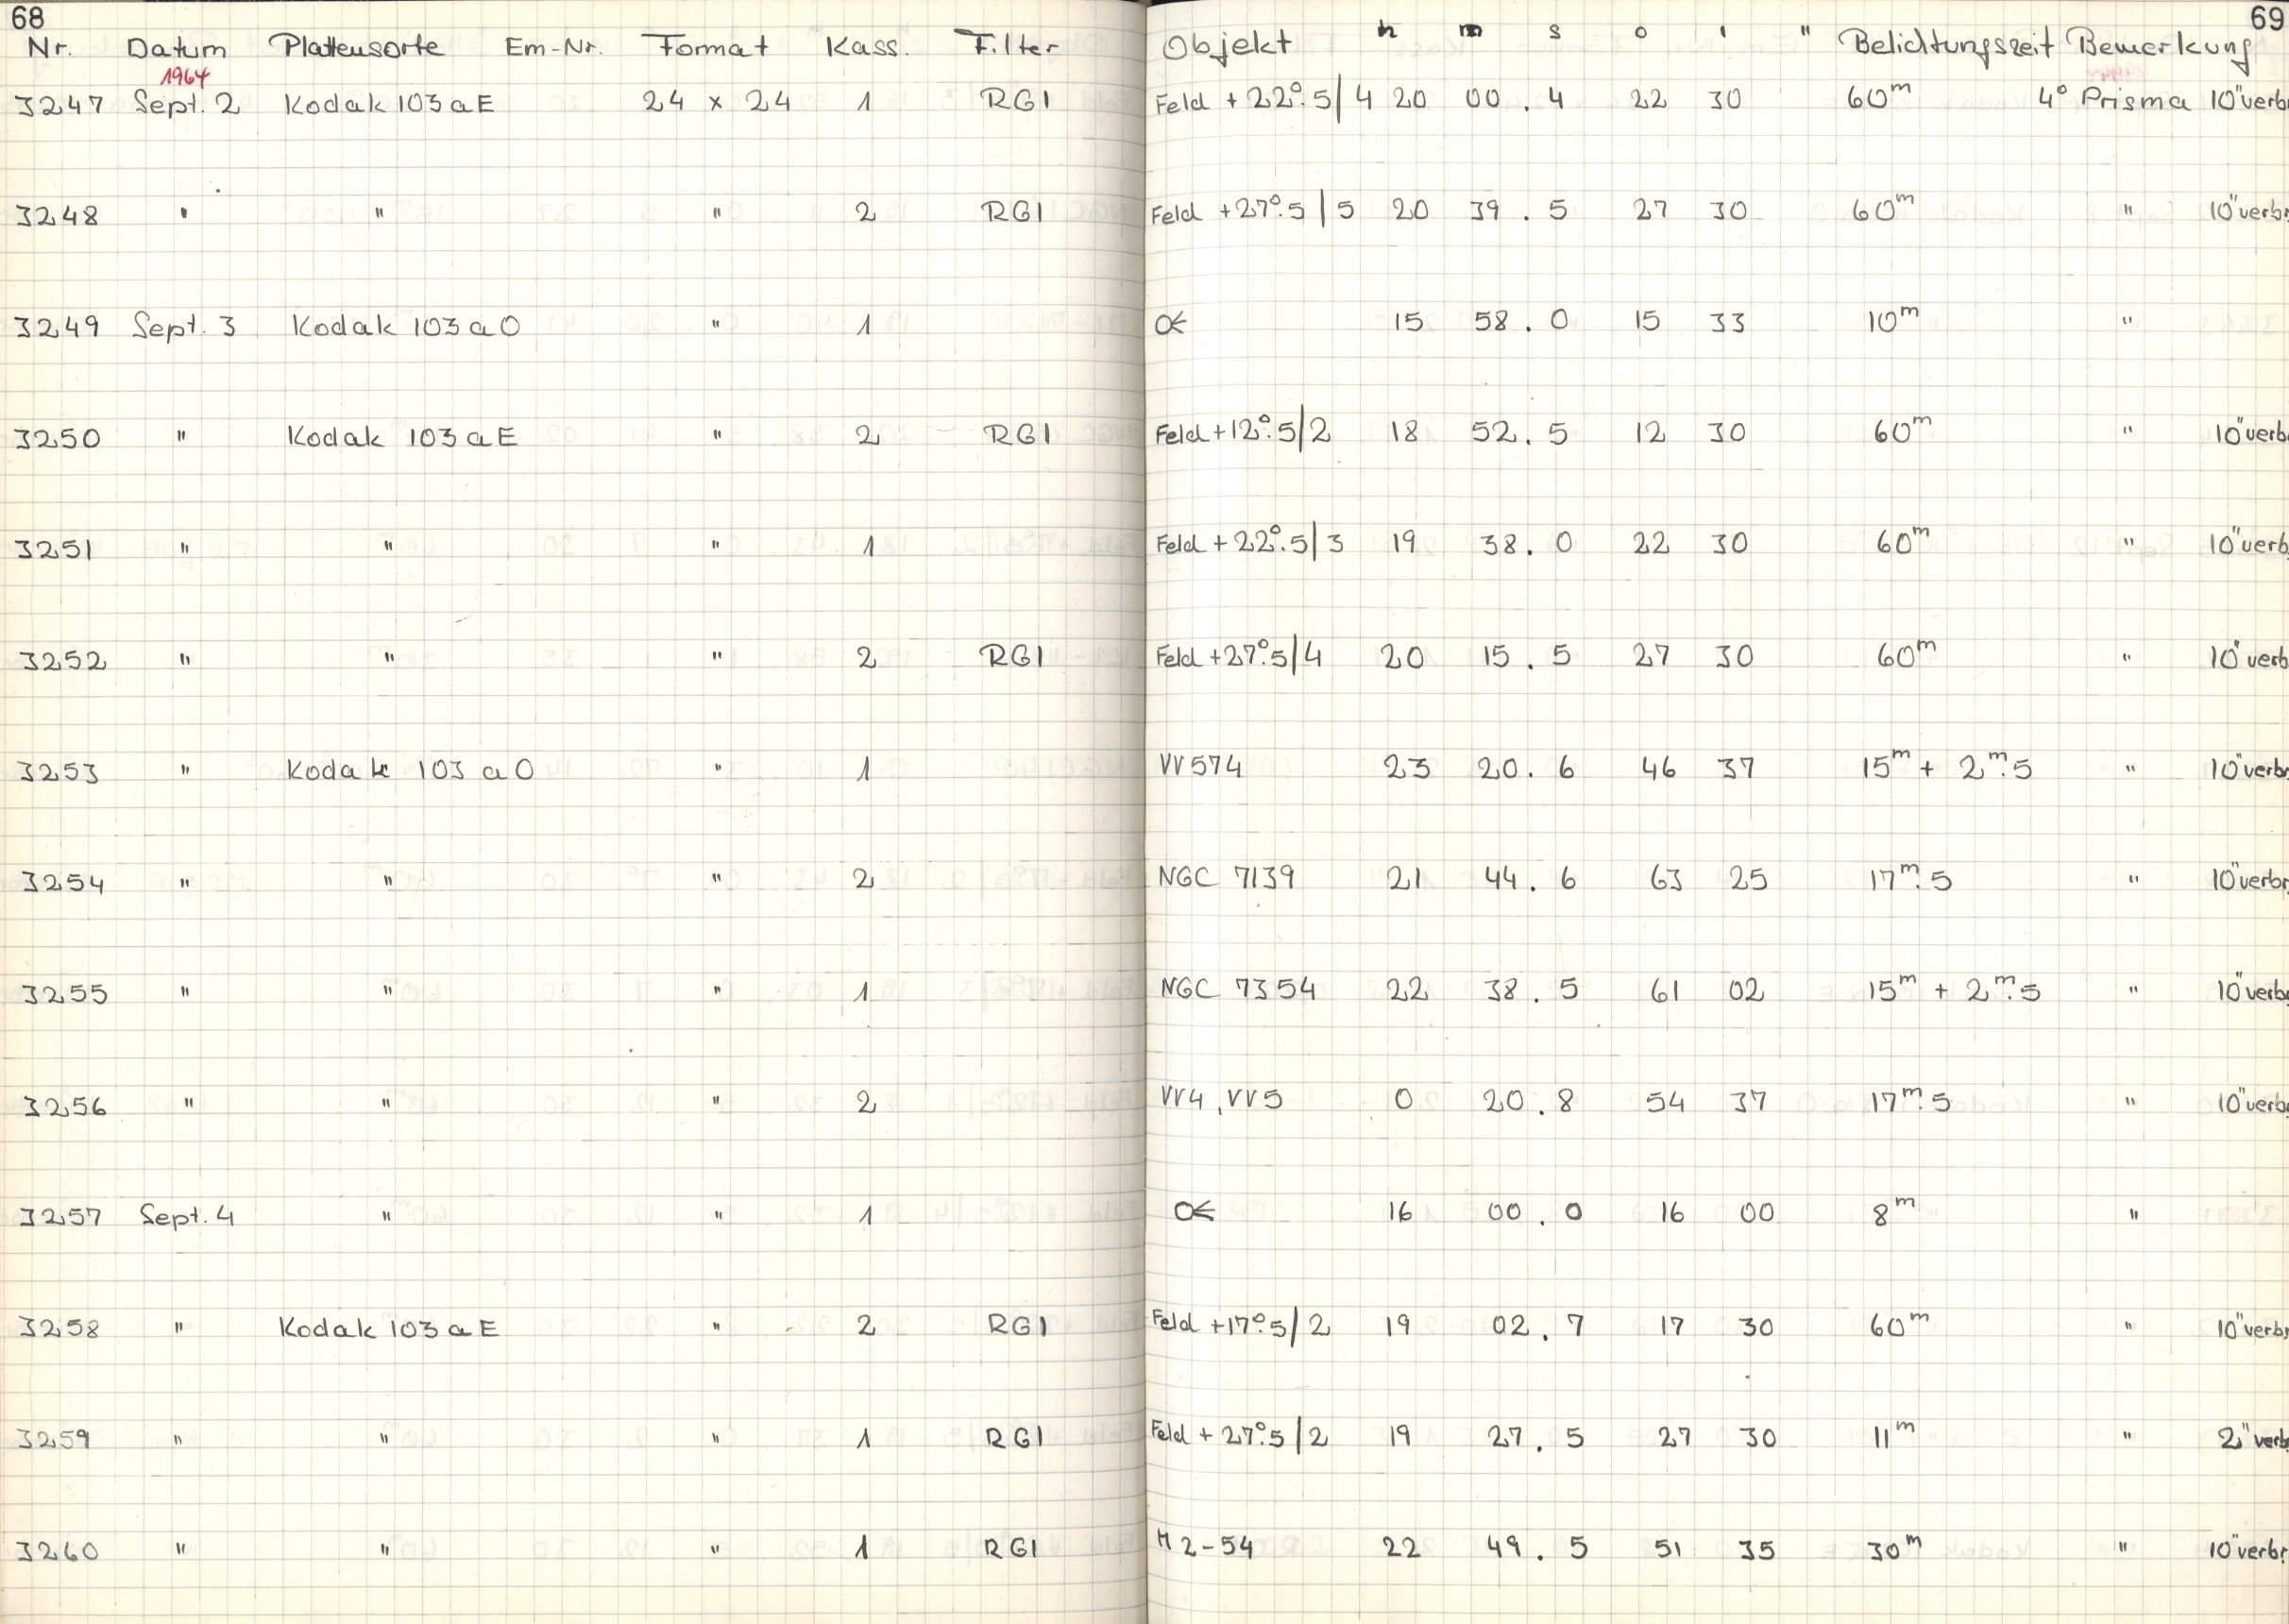 68 69
Nr. Datum Plattensorte Em-Nr. Format Kass. Filter Objekt h m s o ' " Belichtungszeit Bemerkung
1964
3247 Sept. 2 Kodak 103 a E 24 x 24 1 RG1 Feld + 22°.5/4 20 00 . 4 22 30 60m 4° Prisma 10" verbr
3248 " " " 2 RG1 Feld +27°.5/5 20 39 . 5 27 30 60m " 10" verbr
3249 Sept. 3 Kodak 103 a O " 1 15 58 . 0 15 33 10m "
3250 " Kodak 103 a E " 2 RG1 Feld +12°.5/2 18 52 . 5 12 30 60m " 10" verb
3251 " " " 1 Feld + 22°.5/3 19 38 . 0 22 30 60m " 10" verb
3252 " " " 2 RG1 Feld +27°.5/4 20 15 . 5 27 30 60m " 10" verb
3253 " Kodak 103 a O " 1 VV 574 23 20 . 6 46 37 15m + 2m.5 " 10" verbr
3254 " " " 2 NGC 7139 21 44 . 6 63 25 17m.5 " 10" verbr
3255 " " " 1 NGC 7354 22 38 . 5 61 02 15m + 2m.5 " 10" verbr
3256 " " " 2 VV4, VV5 0 20 . 8 54 37 17m.5 " 10" verbr
3257 Sept. 4 " " 1 16 00 . 0 16 00 8m "
3258 " Kodak 103 a E " 2 RG1 Feld +17°.5/2 19 02 . 7 17 30 60m " 10" verbr
3259 " " " 1 RG1 Feld + 27°.5/2 19 27 . 5 27 30 11m " 2" verb
3260 " " " 1 RG1 H 2-54 22 49 . 5 51 35 30m " 10" verbr